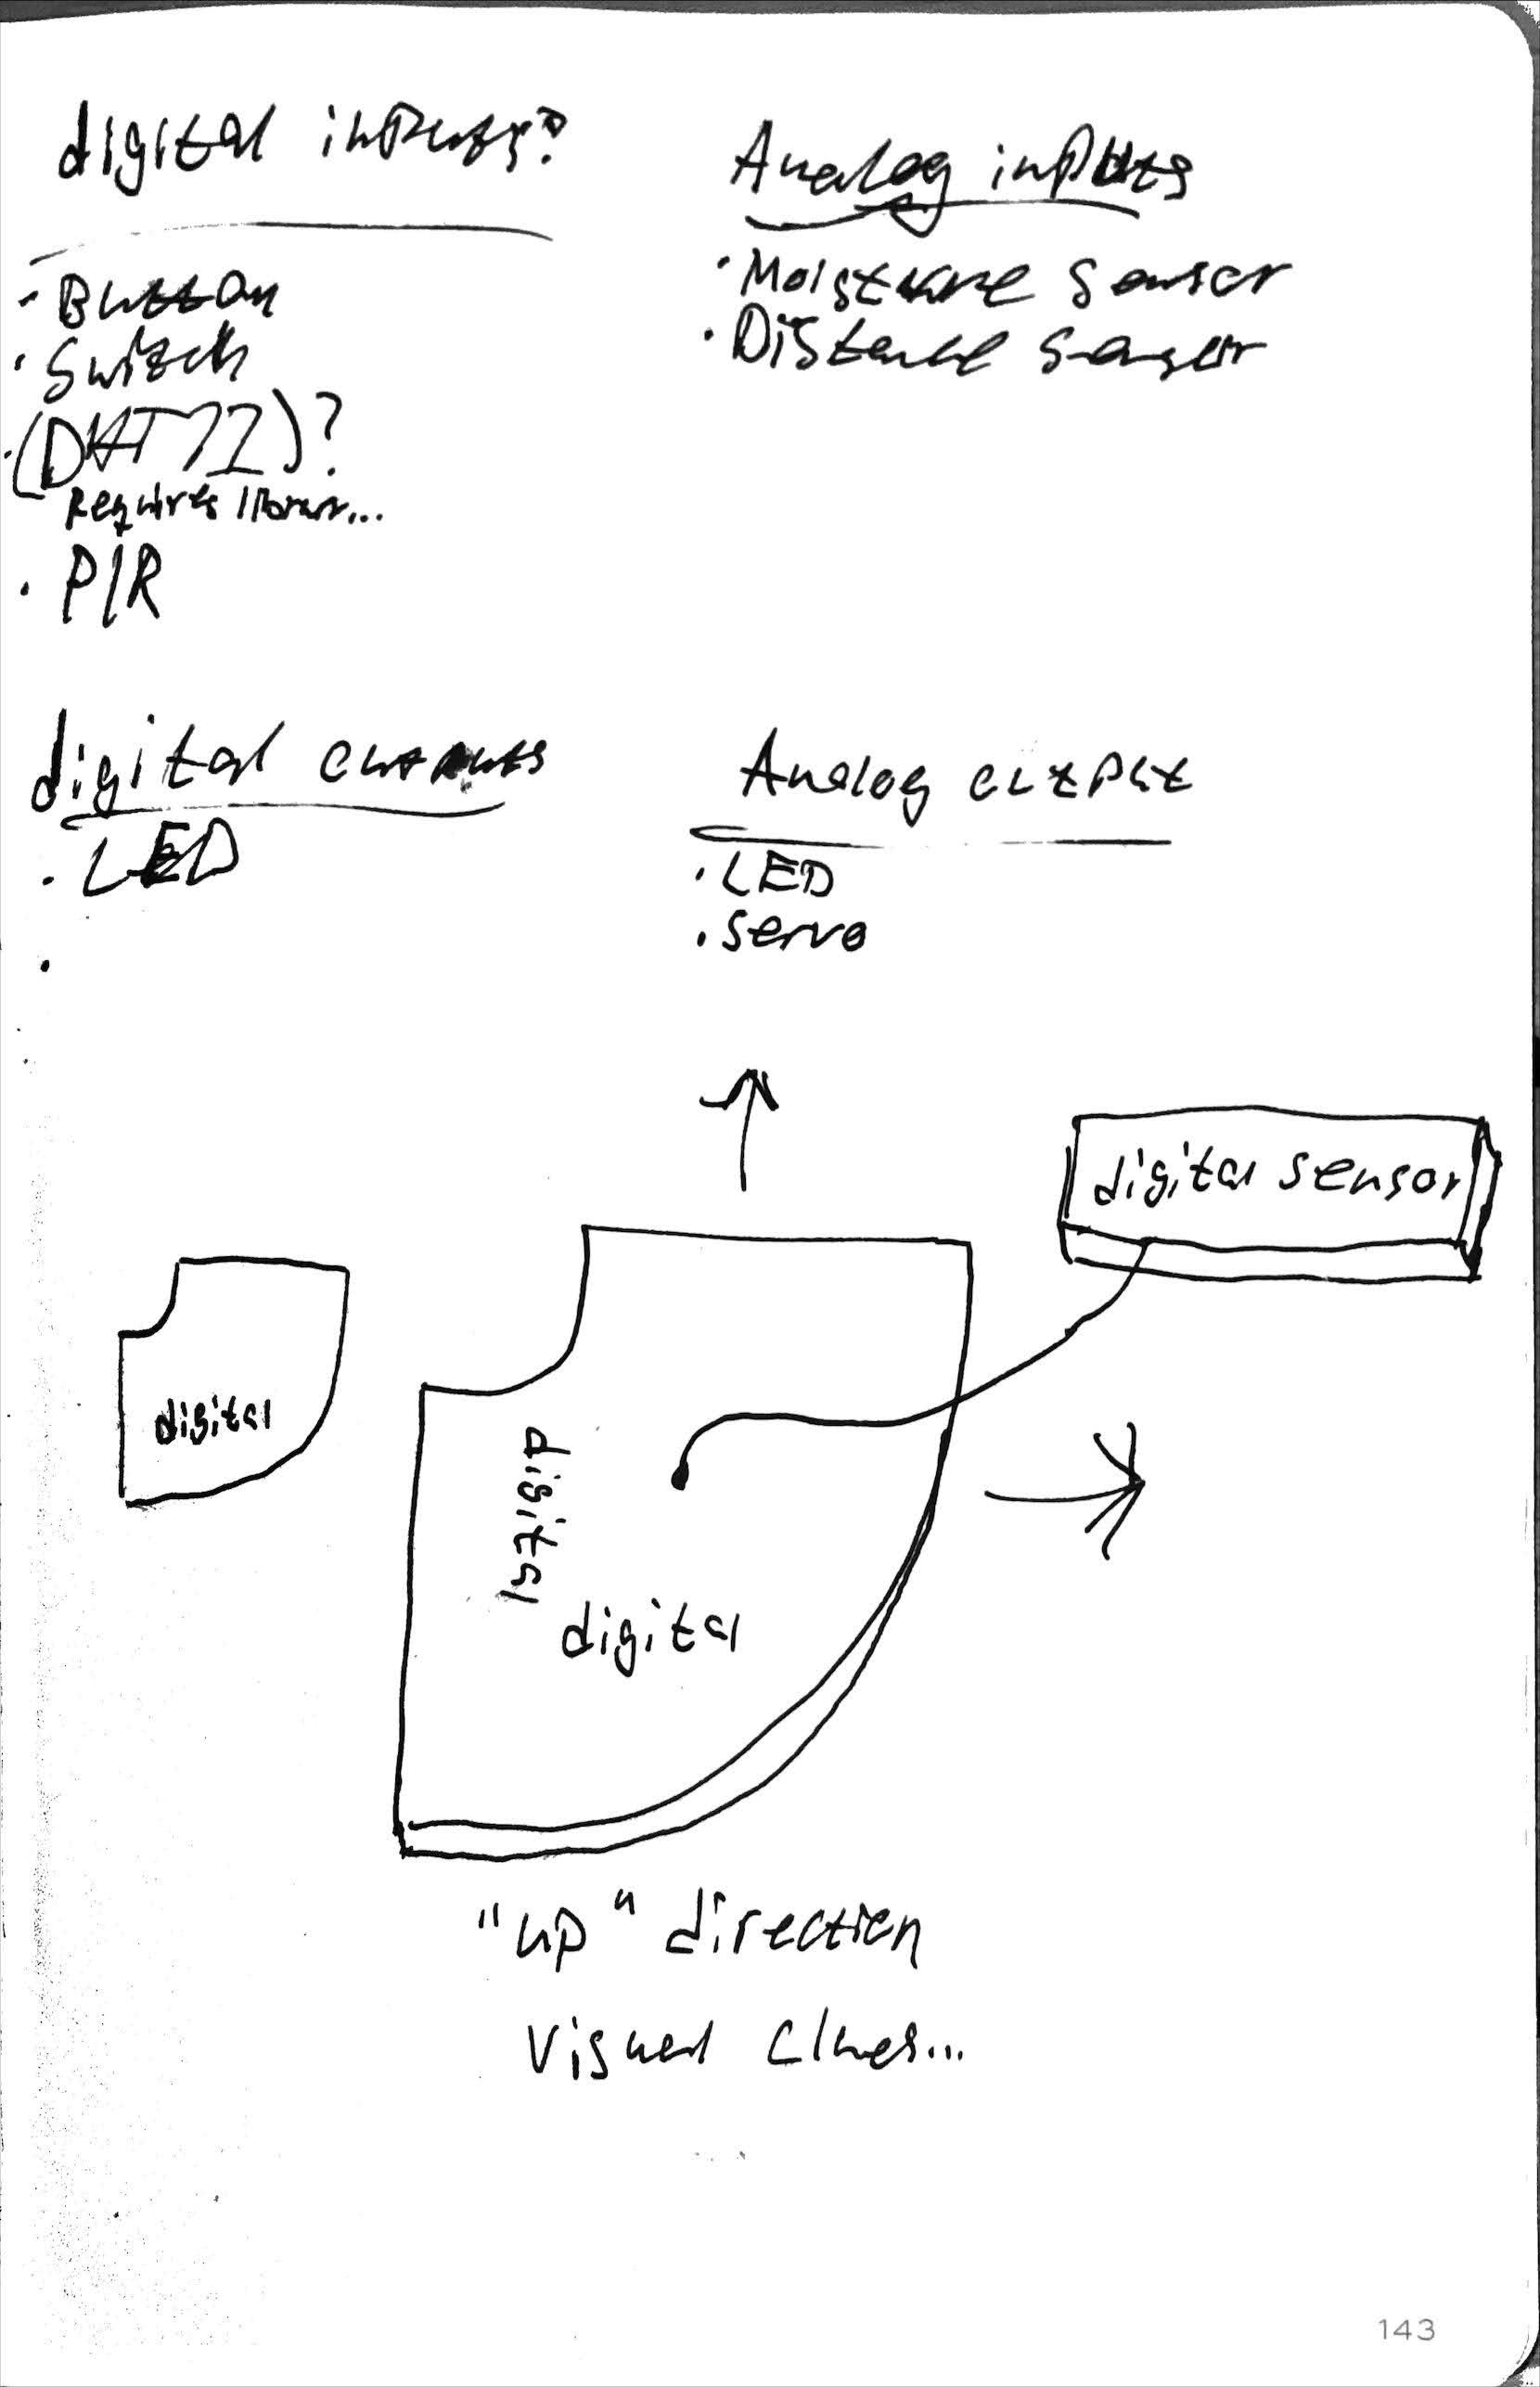 digital inputs?
Analog inputs
· Button
· Switch
· (DHT22)?
Requires library...
· PIR
· Moisture sensor
· Distance sensor
digital outputs
· LED
·
Analog output
· LED
· servo
digital sensor
digital
digital
digital
"up" direction
Visual clues...
143